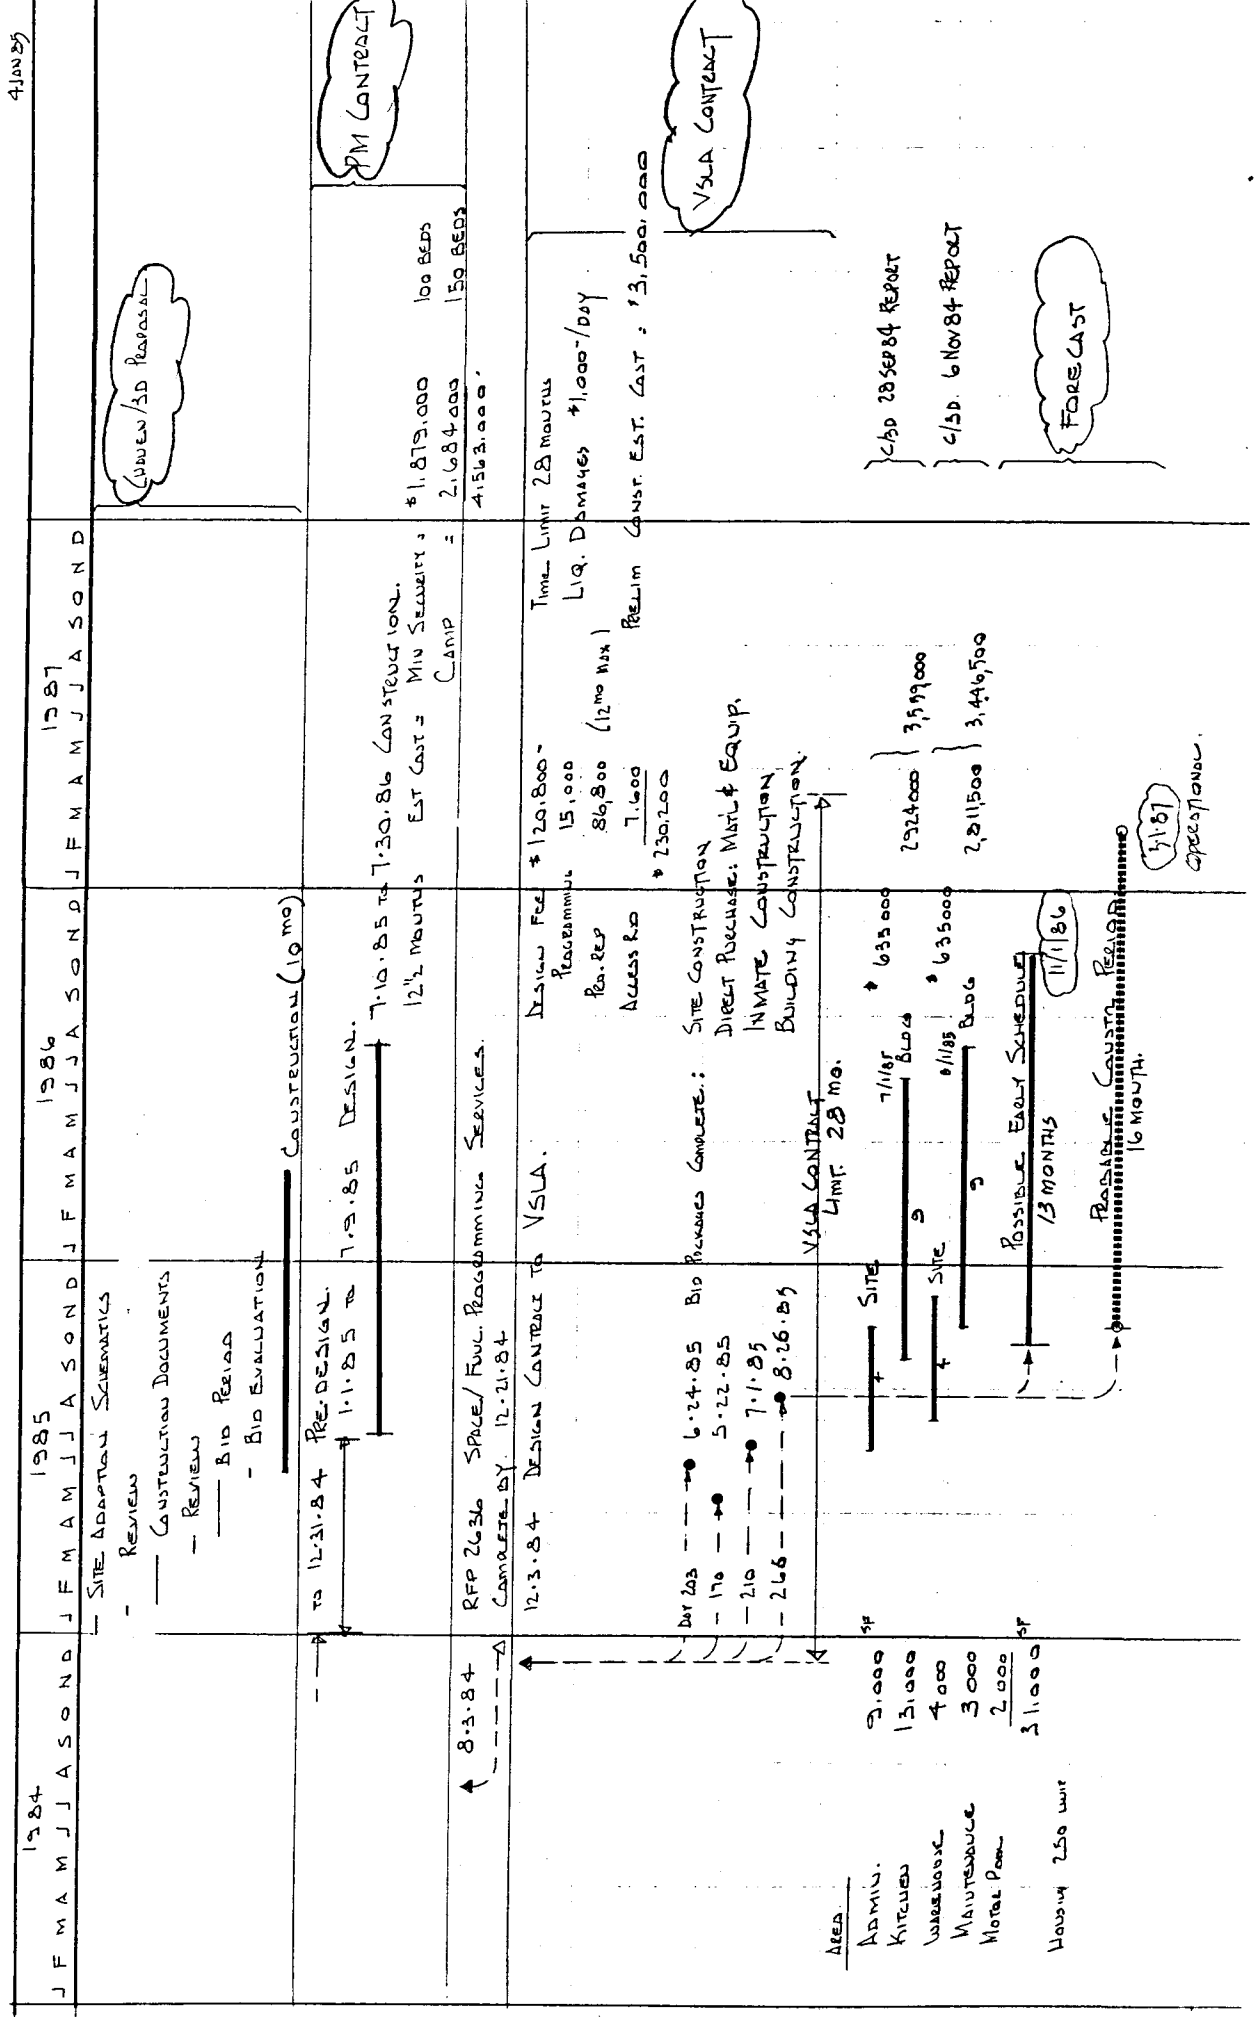 4 JAN 85
1984 1985 1986 1987
J F M A M J J A S O N D J F M A M J J A S O N D J F M A M J J A S O N D J F M A M J J A S O N D
SITE ADAPTION SCHEMATICS
- REVIEW
CONSTRUCTION DOCUMENTS
- REVIEW
BID PERIOD
- BID EVALUATION
CONSTRUCTION (10 MO)
/3D PROPOSAL
TO 12.31.84 PRE.DESIGN.
1.1.85 TO 7.9.85 DESIGN.
7.10.85 TO 7.30.86 CONSTRUCTION.
12 1/2 MONTHS EST COST = MIN SECURITY = $1,879,000 100 BEDS
CAMP = 2,684,000 150 BEDS
4,563,000.
PM CONTRACT
8.3.84
RFP 2636 SPACE/FUNC. PROGRAMMING SERVICES.
COMPLETE BY 12.21.84
12.3.84 DESIGN CONTRACT TO VSLA.
DESIGN FEE $120,800-
PROGRAMMING 15,000
PRO.REP 86,800 (12 MO MAX)
ACCESS RD 7,600
$230,200
TIME LIMIT 28 MONTHS
LIQ. DAMAGES $1,000-/DAY
PRELIM CONST. EST. COST = $3,500,000
VSLA CONTRACT
DAY 203 6.24.85 BID PACKAGES COMPLETE: SITE CONSTRUCTION
170 5.22.85 DIRECT PURCHASE: MATL & EQUIP.
210 7.1.85 INMATE CONSTRUCTION
266 8.26.85 BUILDING CONSTRUCTION.
VSLA CONTRACT
LIMIT. 28 MO.
AREA
ADMIN. 9,000 SF
KITCHEN 13,000
WAREHOUSE 4000
MAINTENANCE 3000
MOTOR POOL 2000
31,000 SF
HOUSING 250
4 SITE
9 7/1/85 BLDG
$ 635000
2924000 3,559,000
C/3D 28 SEP 84 REPORT
4 SITE
9 8/1/85 BLDG
$ 635000
2,811,500 3,446,500
C/3D. 6 NOV 84 REPORT
POSSIBLE EARLY SCHEDULE
13 MONTHS
11/1/86
PROBABLE CONSTR PERIOD
16 MONTH.
3.1.87
OPERATIONAL.
FORECAST